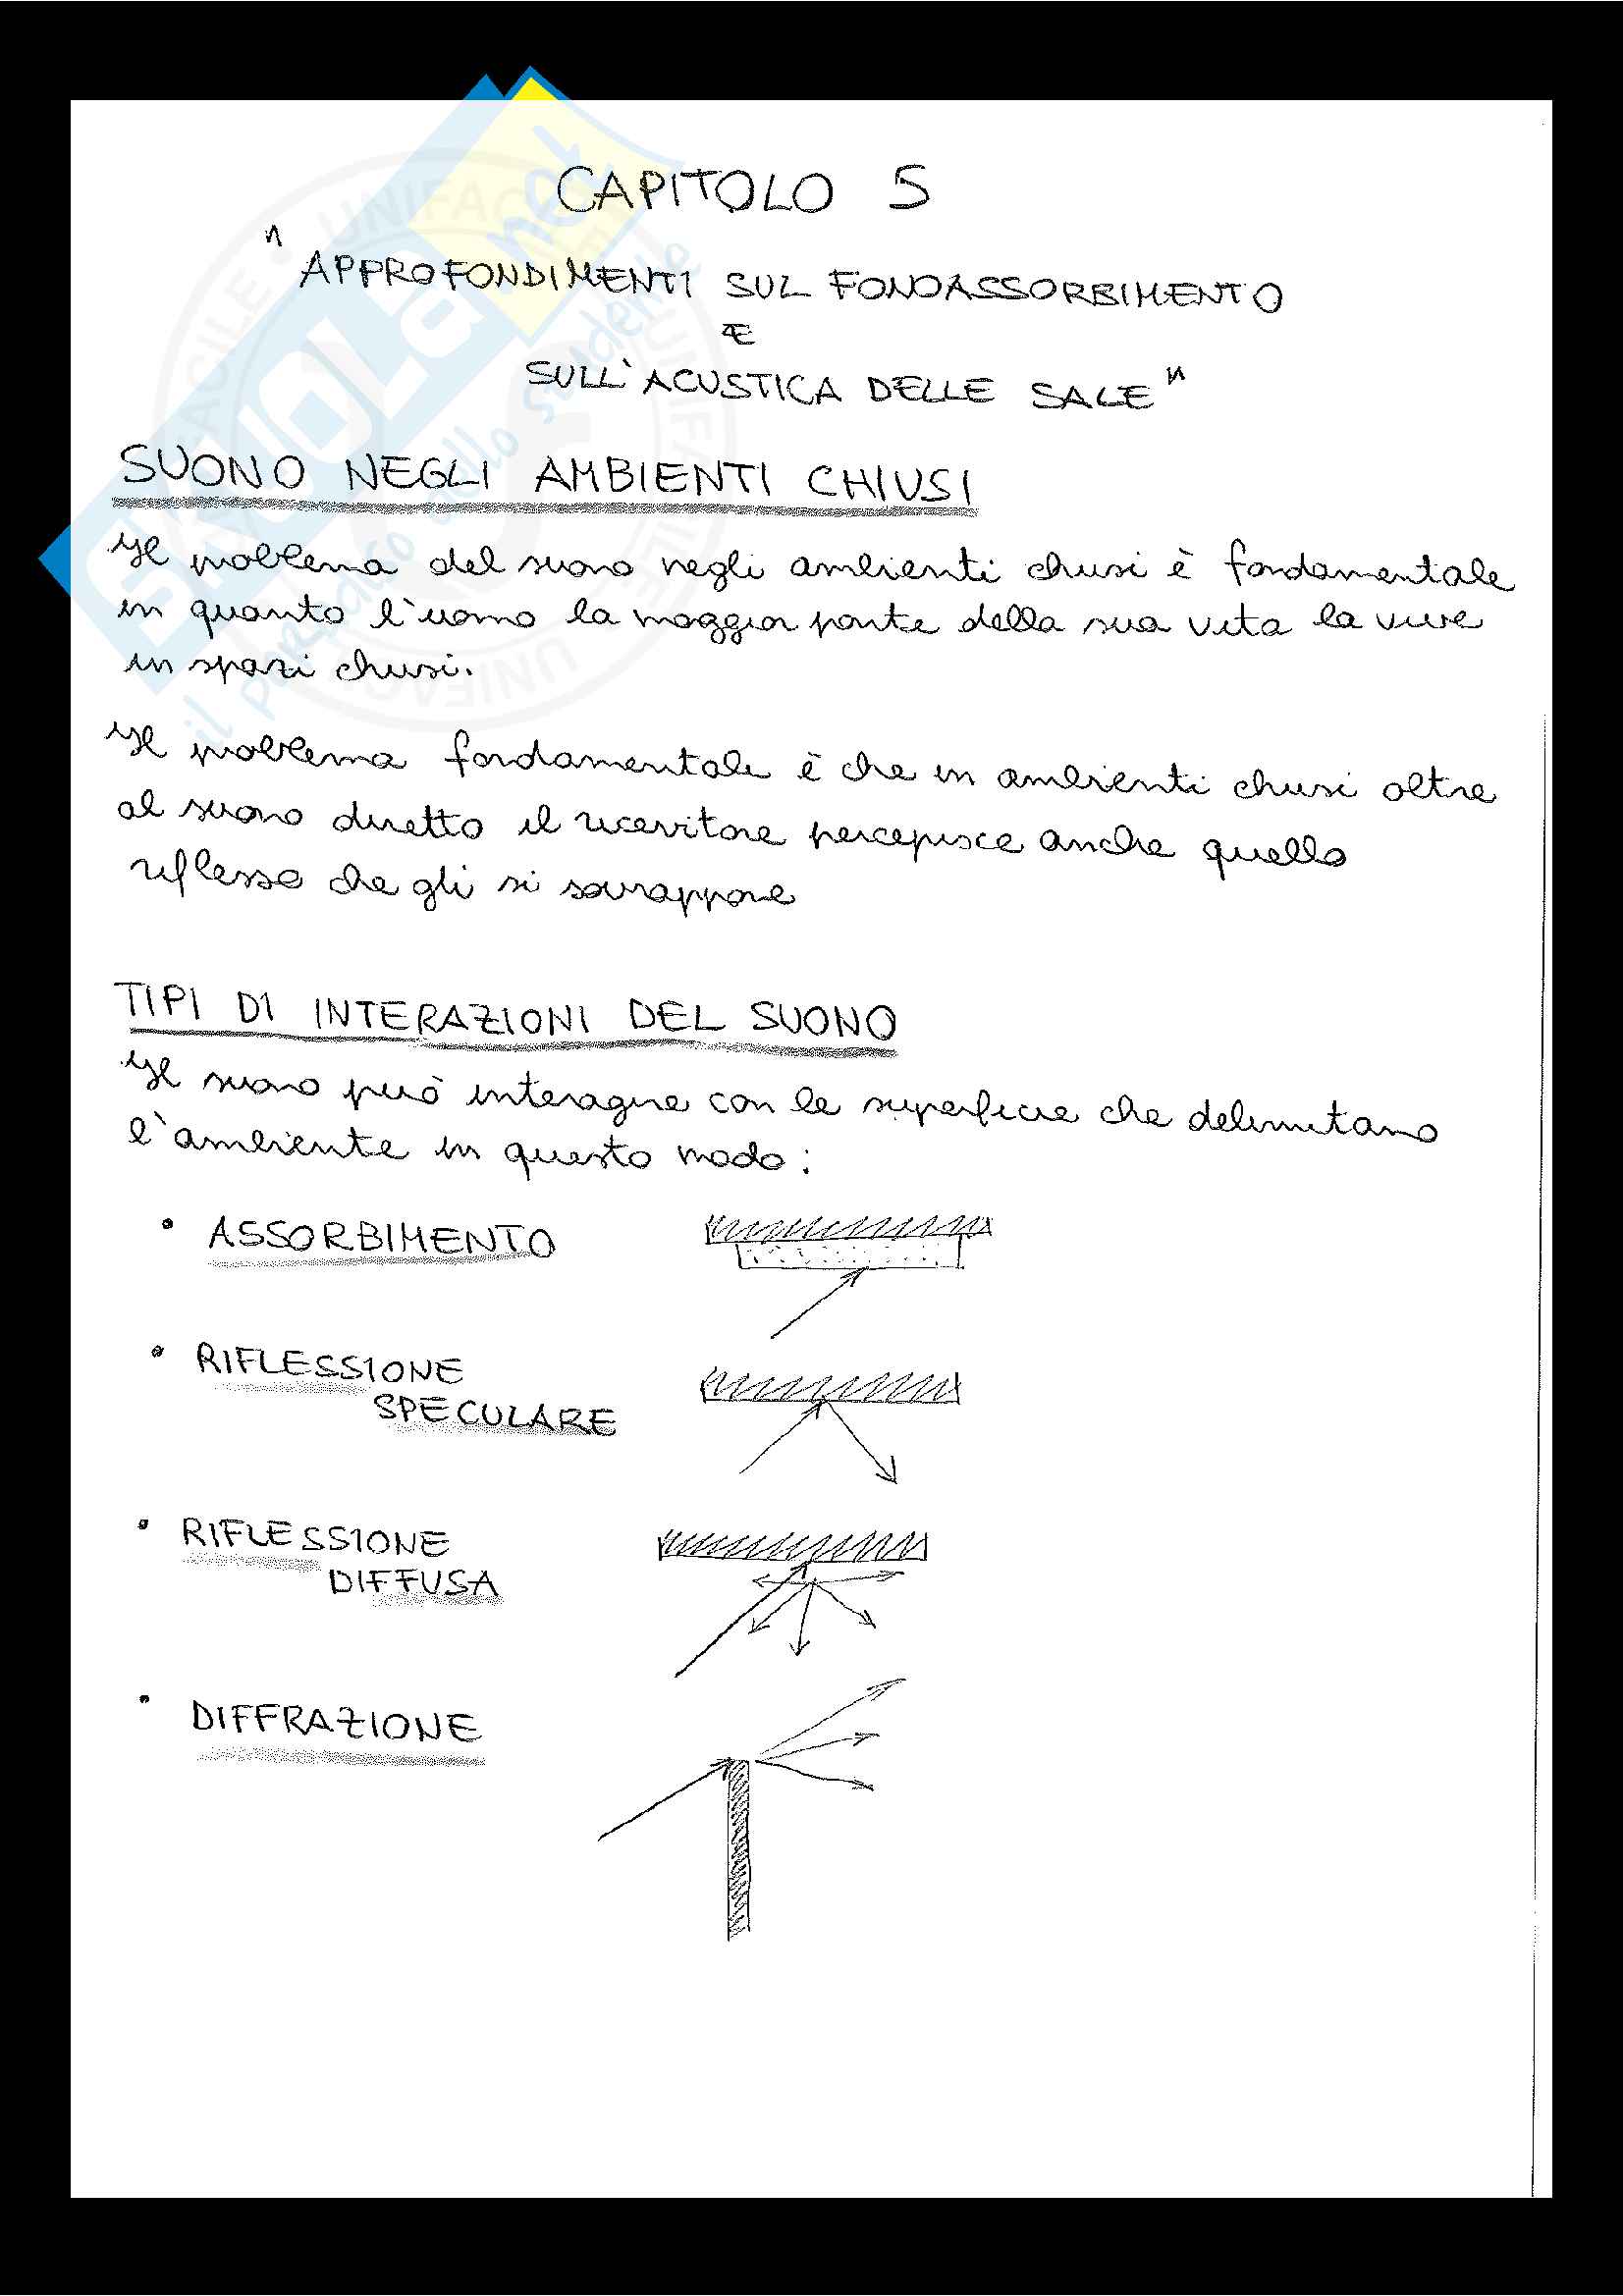 CAPITOLO 5
" APPROFONDIMENTI SUL FONOASSORBIMENTO
E
SULL'ACUSTICA DELLE SALE "
SUONO NEGLI AMBIENTI CHIUSI
Il problema del suono negli ambienti chiusi è fondamentale
in quanto l'uomo la maggior parte della sua vita la vive
in spazi chiusi.
Il problema fondamentale è che in ambienti chiusi oltre
al suono diretto il ricevitore percepisce anche quello
riflesso che gli si sovrappone
TIPI DI INTERAZIONI DEL SUONO
Il suono può interagire con le superficie che delimitano
l'ambiente in questo modo:
• ASSORBIMENTO
• RIFLESSIONE
SPECULARE
• RIFLESSIONE
DIFFUSA
• DIFFRAZIONE